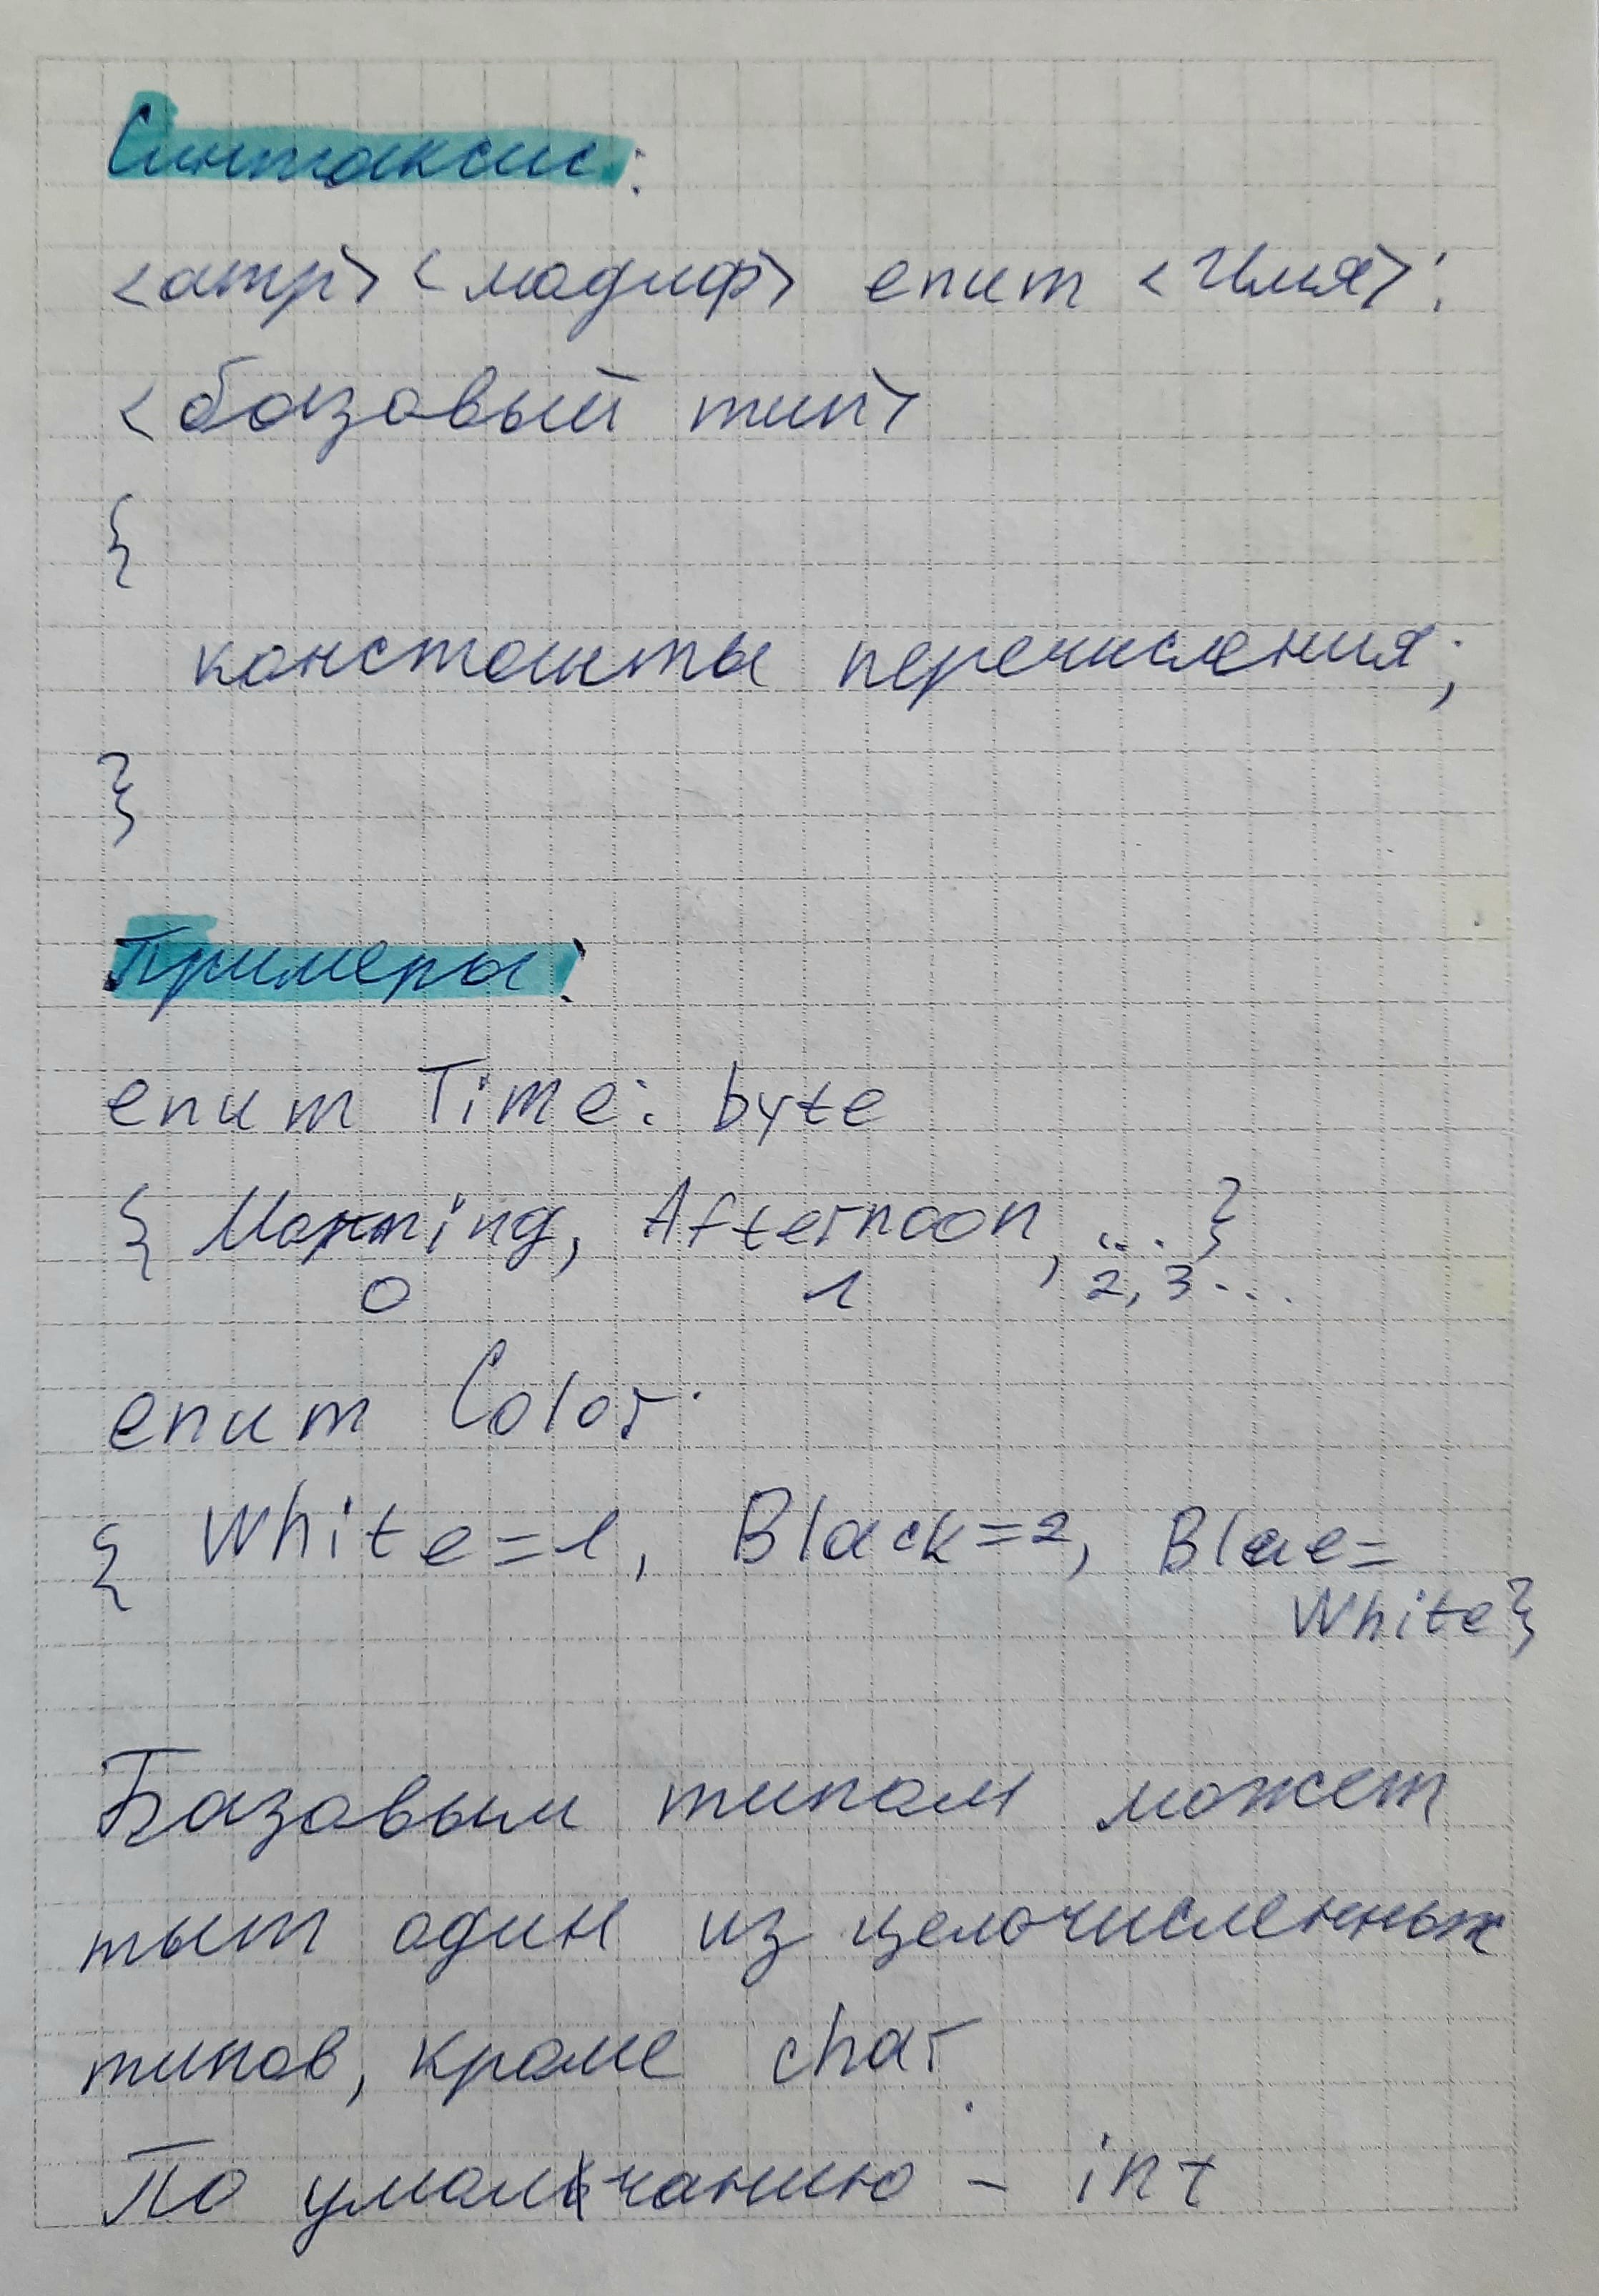 Синтаксис:
<атр> <модиф> enum <Имя>:
<базовый тип>
{
константы перечисления;
}
Примеры:
enum Time: byte
{ Morning, Afternoon, ... }
0 1 2, 3...
enum Color
{ White=1, Black=2, Blue=
White}
Базовым типом может
тыт один из целочисленных
типов, кроме char.
По умолчанию - int